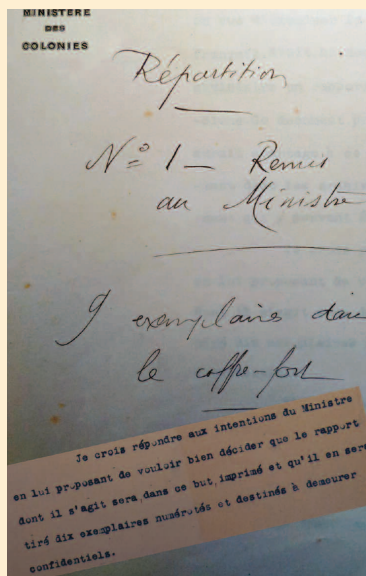 MINISTÈRE
DES
COLONIES
Répartition
Nº 1 — Remis
au Ministre
9 exemplaires dans
le coffre-fort
Je crois répondre aux intentions du Ministre
en lui proposant de vouloir bien décider que le rapport
dont il s'agit sera, dans ce but, imprimé et qu'il en sera
tiré dix exemplaires numérotés et destinés à demeurer
confidentiels.